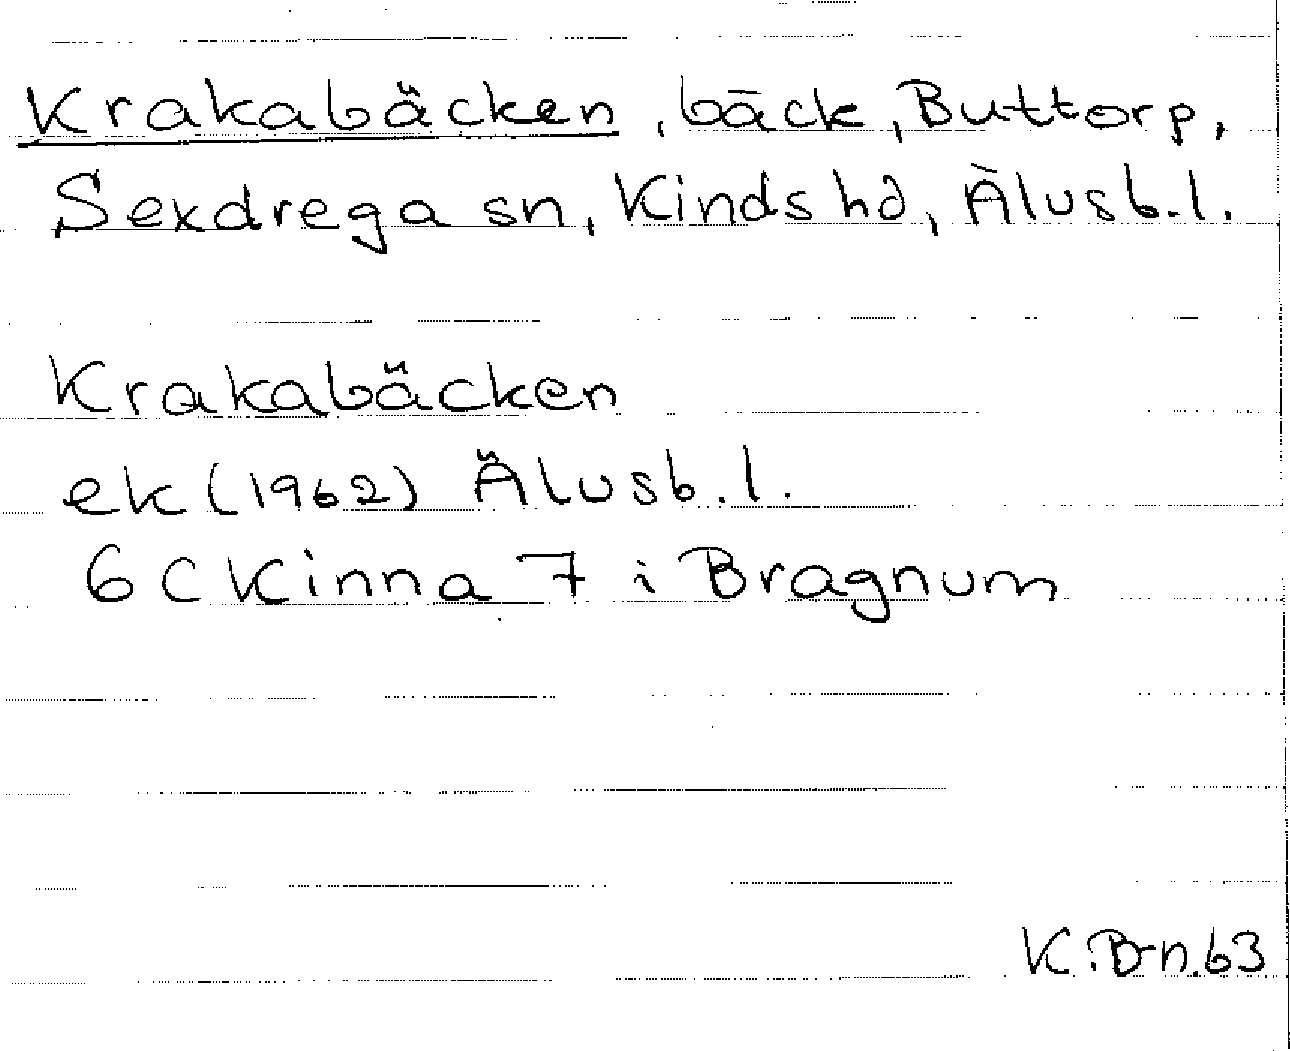 Krakabäcken, bäck, Buttorp,
Sexdrega sn, Kinds hd, Älvsb.l.
Krakabäcken
ek (1962) Älvsb.l.
6 C Kinna 7 i Bragnum
K.B-n.63